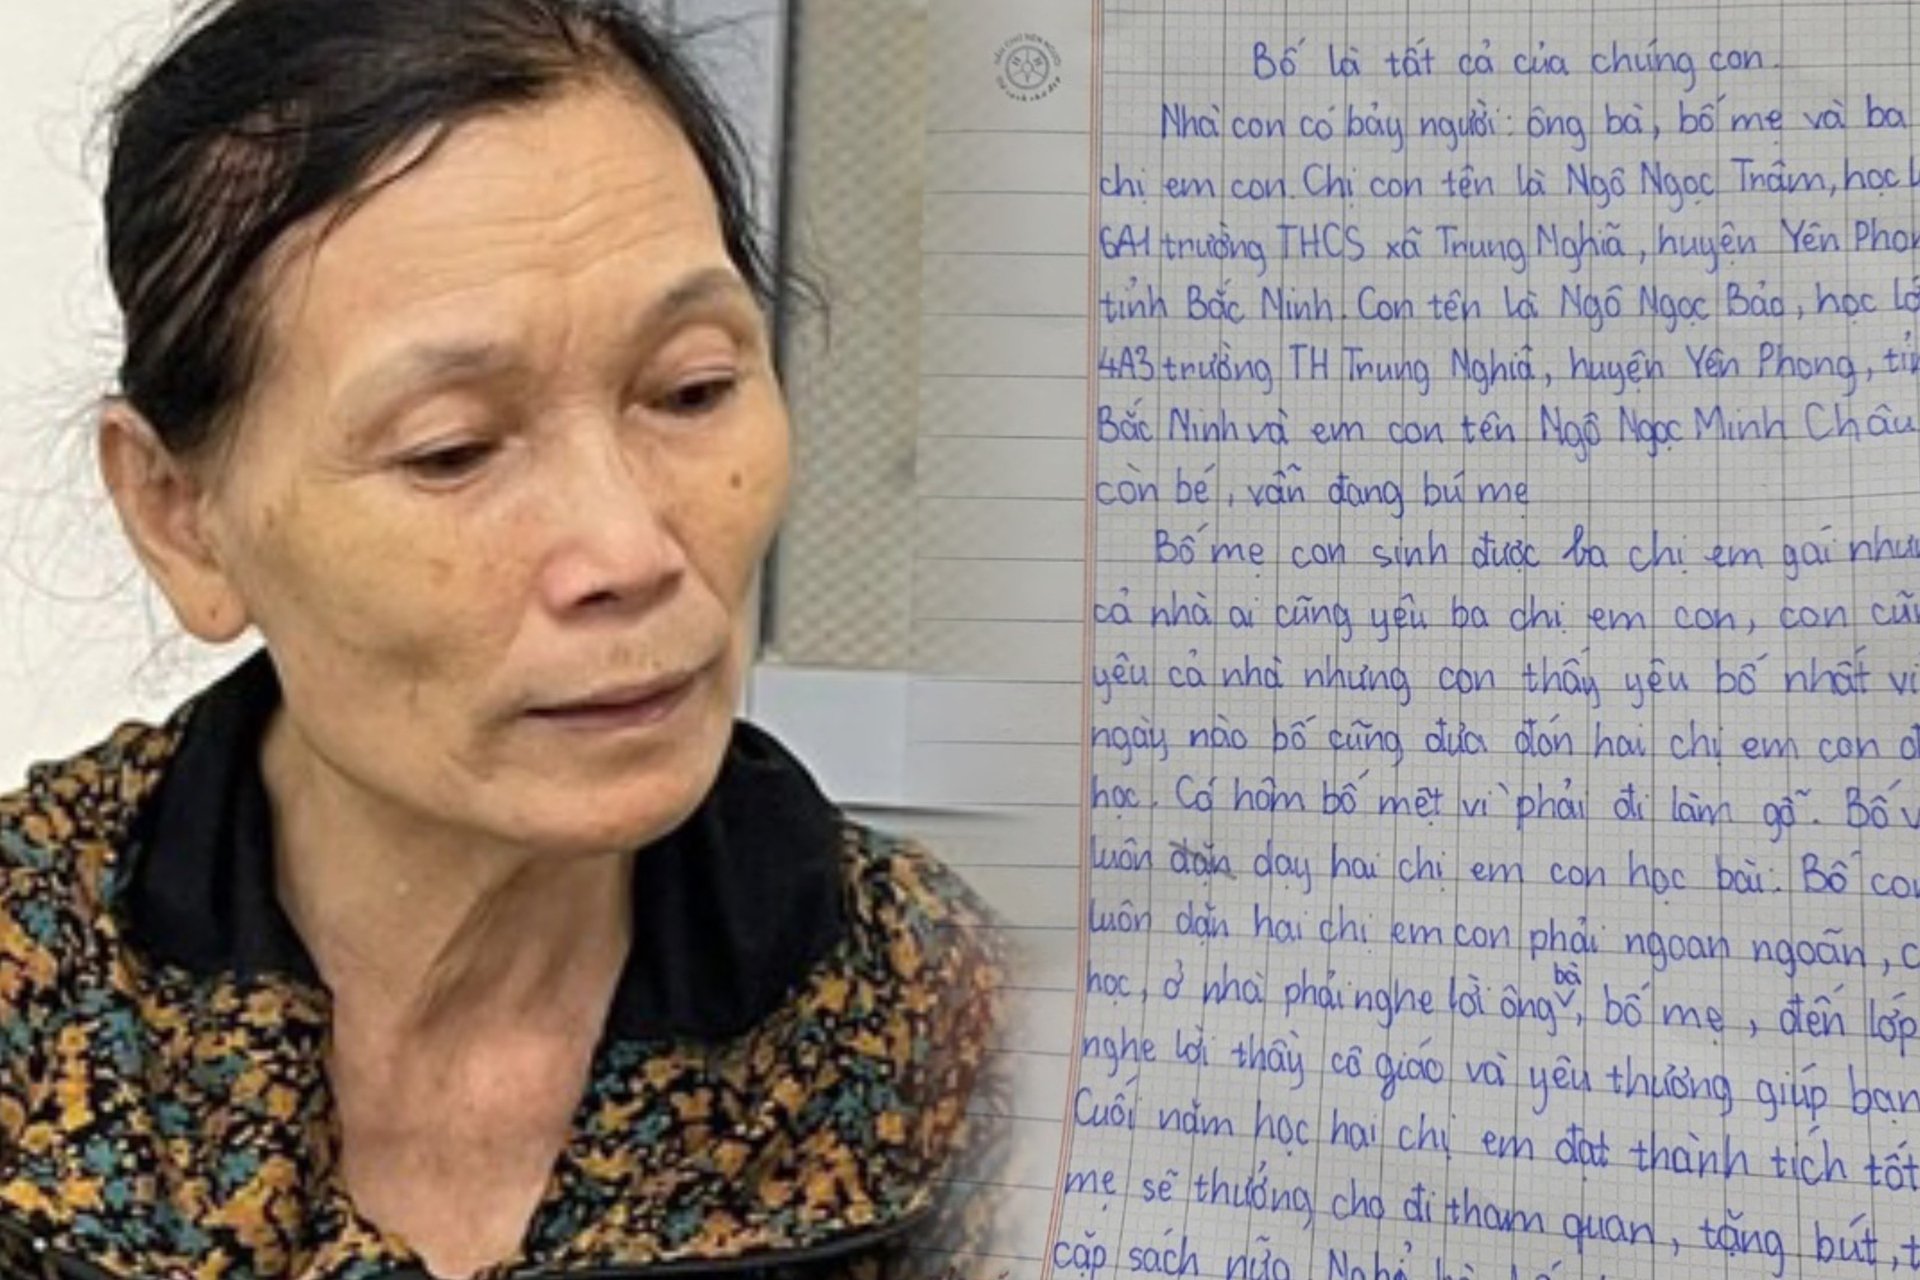 Bố là tất cả của chúng con.
Nhà con có bảy người: ông bà, bố mẹ và ba
chị em con. Chị con tên là Ngô Ngọc Trâm, học
6A1 trường THCS xã Trung Nghĩa, huyện Yên Phon
tỉnh Bắc Ninh. Con tên là Ngô Ngọc Bảo, học lớ
4A3 trường TH Trung Nghĩa, huyện Yên Phong, tỉn
Bắc Ninh và em con tên Ngô Ngọc Minh Châu
còn bé, vẫn đang bú mẹ
Bố mẹ con sinh được ba chị em gái như
cả nhà ai cũng yêu ba chị em con, con cũ
yêu cả nhà nhưng con thấy yêu bố nhất vì
ngày nào bố cũng đưa đón hai chị em con đ
học. Có hôm bố mệt vì phải đi làm gỗ. Bố v
luôn dạy hai chị em con học bài. Bố con
luôn dặn hai chị em con phải ngoan ngoãn, c
học, ở nhà phải nghe lời ông bà, bố mẹ, đến lớp
nghe lời thầy cô giáo và yêu thương giúp bạn
Cuối năm học hai chị em đạt thành tích tốt
mẹ sẽ thưởng cho đi tham quan, tặng bút, t
cặp sách nữa.